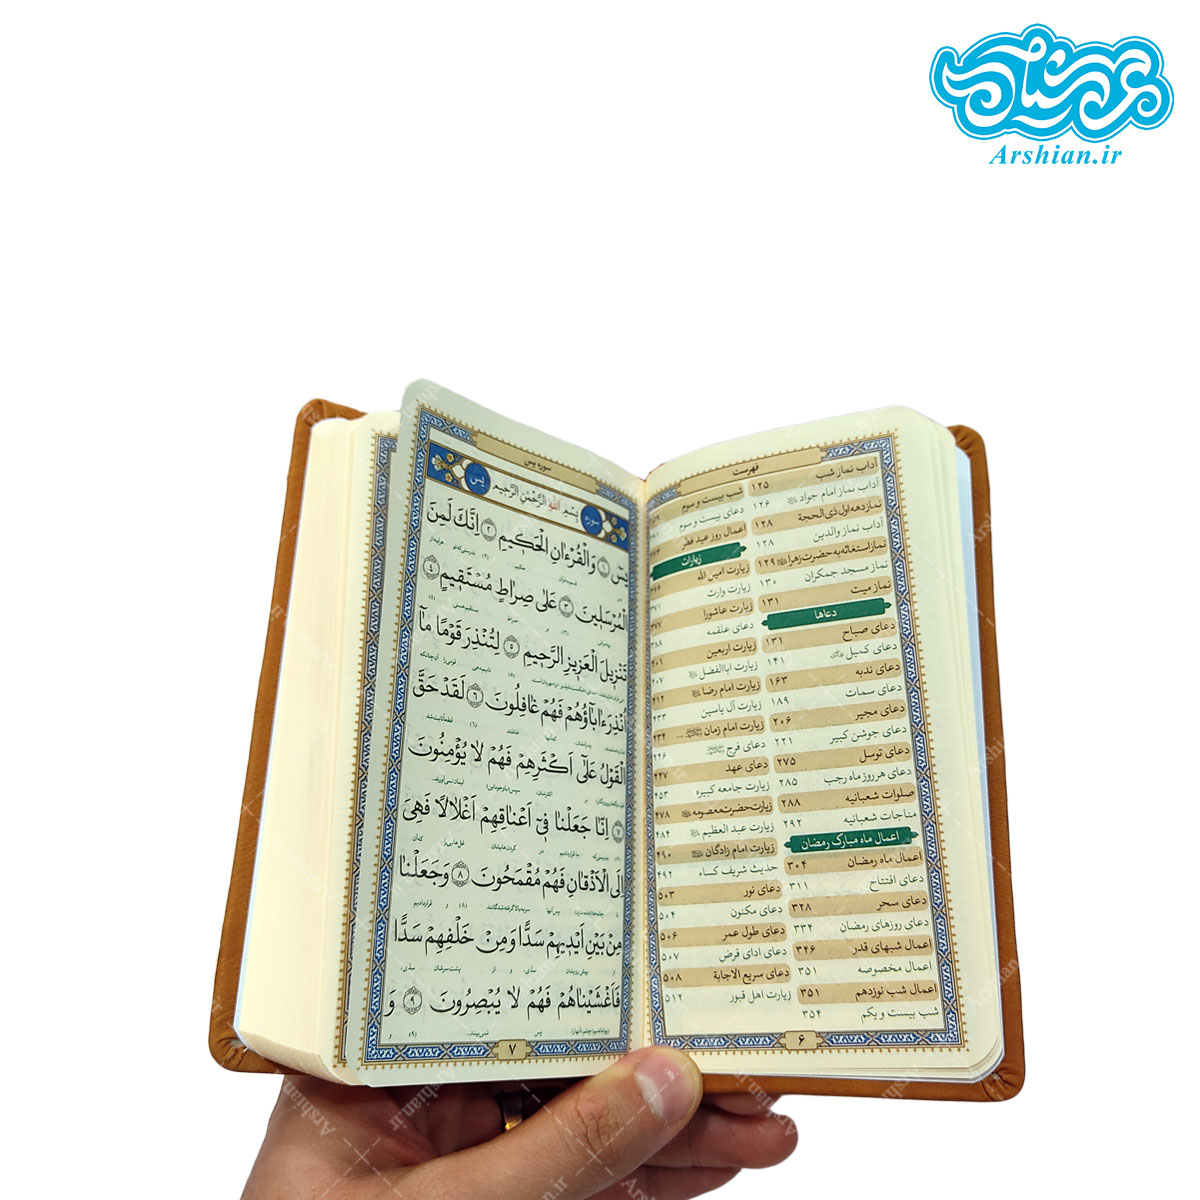 عرشیان
Arshian.ir
فهرست
آداب نماز شب ۱۲۵
آداب نماز امام جواد ۱۲۶
نماز دهه اول ذی الحجة ۱۲۸
آداب نماز والدین ۱۲۸
نماز استغاثه به حضرت زهرا ۱۲۹
نماز مسجد جمکران ۱۳۰
نماز میت ۱۳۱
دعاها
دعای صباح ۱۳۱
دعای کمیل ۱۴۱
دعای ندبه ۱۶۳
دعای سمات ۱۸۹
دعای مجیر ۲۰۶
دعای جوشن کبیر ۲۲۱
دعای توسل ۲۷۵
دعای هر روز ماه رجب ۲۸۵
صلوات شعبانیه ۲۸۸
مناجات شعبانیه ۲۹۲
اعمال ماه مبارک رمضان
اعمال ماه رمضان ۳۰۴
دعای افتتاح ۳۱۱
دعای سحر ۳۲۸
دعای روزهای رمضان ۳۳۴
اعمال شبهای قدر ۳۴۶
اعمال مخصوصه ۳۵۱
اعمال شب نوزدهم ۳۵۱
شب بیست و یکم ۳۵۴
شب بیست و سوم
دعای بیست و سوم
اعمال روز عید فطر
زیارات
زیارت امین الله
زیارت وارث
زیارت عاشورا ۳۷۷
دعای علقمه ۳۸۸
زیارت اربعین ۴۰۱
زیارت اباالفضل ۴۰۷
زیارت امام رضا ۴۱۲
زیارت آل یاسین
زیارت امام زمان
دعای فرج
دعای عهد ۴۴۷
زیارت جامعه کبیره ۴۵۳
زیارت حضرت معصومه ۴۷۸
زیارت عبد العظیم ۴۸۴
زیارت امام زادگان ۴۹۰
حدیث شریف کساء ۴۹۲
دعای نور ۵۰۳
دعای مکنون ۵۰۴
دعای طول عمر ۵۰۶
دعای ادای قرض ۵۰۷
دعای سریع الاجابة ۵۰۸
زیارت اهل قبور ۵۱۲
۶
سوره یس
سوره
یس
بِسْمِ اللهِ الرَّحْمٰنِ الرَّحِیمِ
یسٓ ﴿۱﴾ وَالْقُرْءَانِ الْحَكِیمِ ﴿۲﴾ اِنَّكَ لَمِنَ
الْمُرْسَلِینَ ﴿۳﴾ عَلیٰ صِراطٍ مُسْتَقِیمٍ ﴿۴﴾
تَنْزِیلَ الْعَزِیزِ الرَّحِیمِ ﴿۵﴾ لِتُنْذِرَ قَوْمًا مآ
اُنْذِرَ ءَابآؤُهُمْ فَهُمْ غافِلُونَ ﴿۶﴾ لَقَدْ حَقَّ
الْقَوْلُ عَلیٰٓ اَكْثَرِهِمْ فَهُمْ لا یُؤْمِنُونَ
﴿۷﴾ اِنّا جَعَلْنا فِیٓ اَعْناقِهِمْ اَغْلالًا فَهِیَ
اِلَی الْاَذْقانِ فَهُمْ مُقْمَحُونَ ﴿۸﴾ وَجَعَلْنا
مِنْ بَیْنِ اَیْدِیهِمْ سَدًّا وَمِنْ خَلْفِهِمْ سَدًّا
فَاَغْشَیْناهُمْ فَهُمْ لا یُبْصِرُونَ ﴿۹﴾ وَ
۷